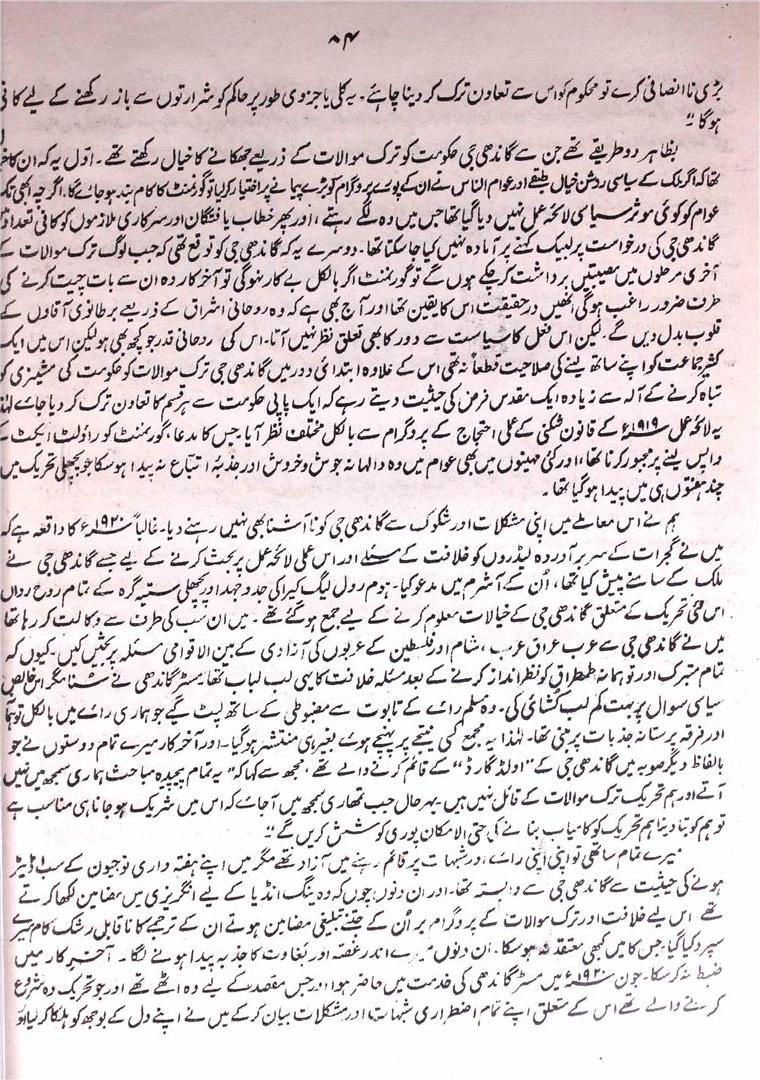 ۸۴
بڑی ناانصافی کرے تو محکوم کو اس سے تعاون ترک کر دینا چاہئے۔ یہ کلی یا جزوی طور پر حاکم کو شرارتوں سے باز رکھنے کے لیے کافی
ہوگا"
بظاہر دو طریقے تھے جن سے گاندھی جی حکومت کو ترک موالات کے ذریعے جھکانے کا خیال رکھتے تھے۔ اوّل یہ کہ ان کا
تھا کہ اگر ملک کے سیاسی روشن خیال طبقے اور عوام الناس نے ان کے پورے پروگرام کو بڑے پیمانے پر اختیار کر لیا تو گورنمنٹ کا کام بند ہو جائے گا۔ اگرچہ ابھی تک
عوام کو کوئی موثر سیاسی لائحہ عمل نہیں دیا گیا تھا جس میں وہ لگے رہتے، اور پھر خطاب یافتگان اور سرکاری ملازموں کو کافی تعداد
گاندھی جی کی درخواست پر لبیک کہنے پر آمادہ نہیں کیا جا سکتا تھا۔ دوسرے یہ کہ گاندھی جی کو توقع تھی کہ جب لوگ ترک موالات کے
آخری مرحلوں میں مصیبتیں برداشت کر چکے ہوں گے تو گورنمنٹ اگر بالکل بے کار نہ ہوگی تو آخر کار وہ ان سے بات چیت کرنے کی
طرف ضرور راغب ہوگی انھیں درحقیقت اس کا یقین تھا اور آج بھی ہے کہ وہ روحانی اشراق کے ذریعے برطانوی آقاوں کے
قلوب بدل دیں گے۔ لیکن اس فعل کا سیاست سے دور کا بھی تعلق نظر نہیں آتا۔ اس کی روحانی قدر جو کچھ بھی ہو لیکن اس میں ایک
کثیر جماعت کو اپنے ساتھ لینے کی صلاحیت قطعاً نہ تھی اس کے علاوہ ابتدائی دور میں گاندھی جی ترک موالات کو حکومت کی مشینری کو
تباہ کرنے کے آلہ سے زیادہ ایک مقدس فرض کی حیثیت دیتے رہے کہ ایک پاپی حکومت سے ہر قسم کا تعاون ترک کر دیا جائے لہٰذا
یہ لائحہ عمل ۱۹۱۹ء کے قانون شکنی کے عملی احتجاج کے پروگرام سے بالکل مختلف نظر آیا، جس کا مدعا، گورنمنٹ کو راؤلٹ ایکٹ
واپس لینے پر مجبور کرنا تھا، اور کئی مہینوں میں بھی عوام میں وہ والہانہ جوش و خروش اور جذبۂ اتباع نہ پیدا ہو سکا جو پچھلی تحریک میں
چند ہفتوں ہی میں پیدا ہو گیا تھا۔
ہم نے اس معاملے میں اپنی مشکلات اور شکوک سے گاندھی جی کو نا آشنا بھی نہیں رہنے دیا۔ غالباً ۱۹۲۰ء کا واقعہ ہے کہ
میں نے گجرات کے سربرآوردہ لیڈروں کو خلافت کے مسئلے اور اس عملی لائحہ عمل پر بحث کرنے کے لیے جسے گاندھی جی نے
ملک کے سامنے پیش کیا تھا، اُن کے آشرم میں مدعو کیا۔ ہوم رول لیگ کیرا کی جدوجہد اور پچھلی ستیہ گرہ کے تمام روح رواں
اس نئی تحریک کے متعلق گاندھی جی کے خیالات معلوم کرنے کے لیے جمع ہو گئے تھے۔ میں ان سب کی طرف سے وکالت کر رہا تھا
میں نے گاندھی جی سے عرب عراق عرب، شام اور فلسطین کے عربوں کی آزادی کے بین الاقوامی مسئلہ پر بحثیں کیں۔ کیوں کہ
تمام متبرک اور توہمانہ طمطراق کو نظر انداز کرنے کے بعد مسئلہ خلافت کا یہی لب لباب تھا، مسٹر گاندھی نے سُنا مگر اس خالص
سیاسی سوال پر بہت کم لب کشائی کی۔ وہ مسلم رائے کے تابوت سے مضبوطی کے ساتھ لپٹ گیے جو ہماری رائے میں بالکل
اور فرقہ پرستانہ جذبات پر مبنی تھا۔ لہٰذا یہ مجمع کسی نتیجے پر پہنچے ہوئے بغیر ہی منتشر ہو گیا۔ اور آخر کار میرے تمام دوستوں نے جو
بالفاظ دیگر صوبہ میں گاندھی جی کے "اولڈ گارڈ" کے قائم کرنے والے تھے، مجھ سے کہا کہ "یہ تمام پیچیدہ مباحث ہماری سمجھ میں نہیں
آتے اور ہم تحریک ترک موالات کے قائل نہیں ہیں۔ بہرحال جب تمھاری سمجھ میں آجائے کہ اس میں شریک ہو جانا ہی مناسب ہے
تو ہم کو بتا دینا ہم تحریک کو کامیاب بنانے کی حتی الامکان پوری کوشش کریں گے"
میرے تمام ساتھی تو اپنی اپنی رائے اور شبہات پر قائم رہنے میں آزاد تھے مگر میں اپنے ہفتہ داری نوجیون کے سب اڈیٹر
ہونے کی حیثیت سے گاندھی جی سے وابستہ تھا۔ اور ان دنوں چوں کہ وہ ینگ انڈیا کے لیے انگریزی میں مضامین لکھا کرتے
تھے اس لیے خلافت اور ترک موالات کے پروگرام پر اُن کے جتنے تبلیغی مضامین ہوتے ان کے ترجمے کا ناقابل رشک کام میرے
سپرد کیا گیا، جس کا میں کبھی معتقد نہ ہو سکا۔ اُن دنوں میرے اندر غصّہ اور بغاوت کا جذبہ پیدا ہونے لگا۔ آخر کار میں
ضبط نہ کر سکا۔ جون ۱۹۲۰ء میں مسٹر گاندھی کی خدمت میں حاضر ہوا اور جس مقصد کے لیے وہ اٹھے تھے اور جو تحریک وہ شروع
کرنے والے تھے اس کے متعلق اپنے تمام اضطراری شبہات اور مشکلات بیان کر کے میں نے اپنے دل کے بوجھ کو ہلکا کر لیا